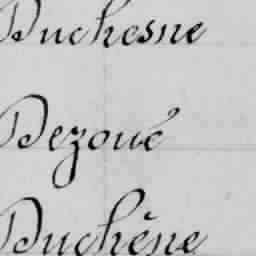 Duchesne
Dezoué
Duchêne